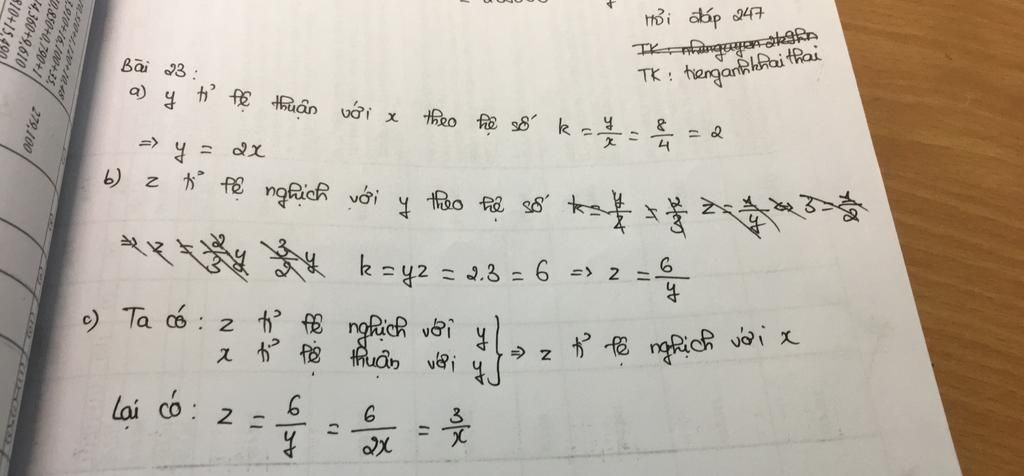 Hỏi đáp 247
TK: tienganhkhaithai
Bài 23:
a) y tỉ lệ thuận với x theo hệ số k = y/x = 8/4 = 2
=> y = 2x
b) z tỉ lệ nghịch với y theo hệ số
k = yz = 2.3 = 6 => z = 6/y
c) Ta có: z tỉ lệ nghịch với y
x tỉ lệ thuận với y } => z tỉ lệ nghịch với x
Lại có: z = 6/y = 6/2x = 3/x
779,100